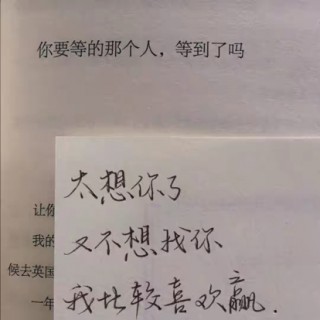 你要等的那个人，等到了吗
太想你了
又不想找你
我比较喜欢赢.
让你
我的
候去英国
一年